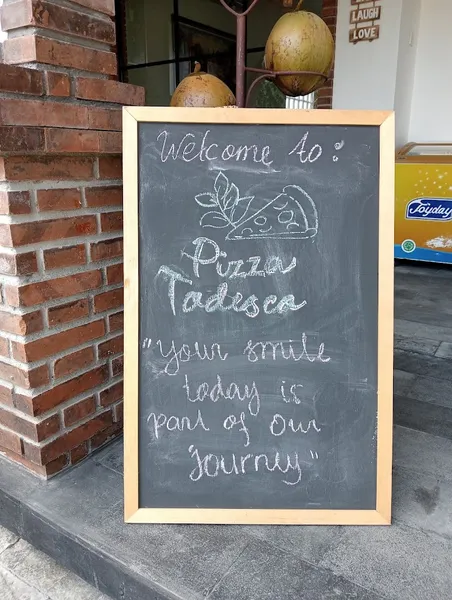 LAUGH
LOVE
Welcome to:
Pizza
Tadesca
"Your smile
today is
part of our
journey"
Joyday